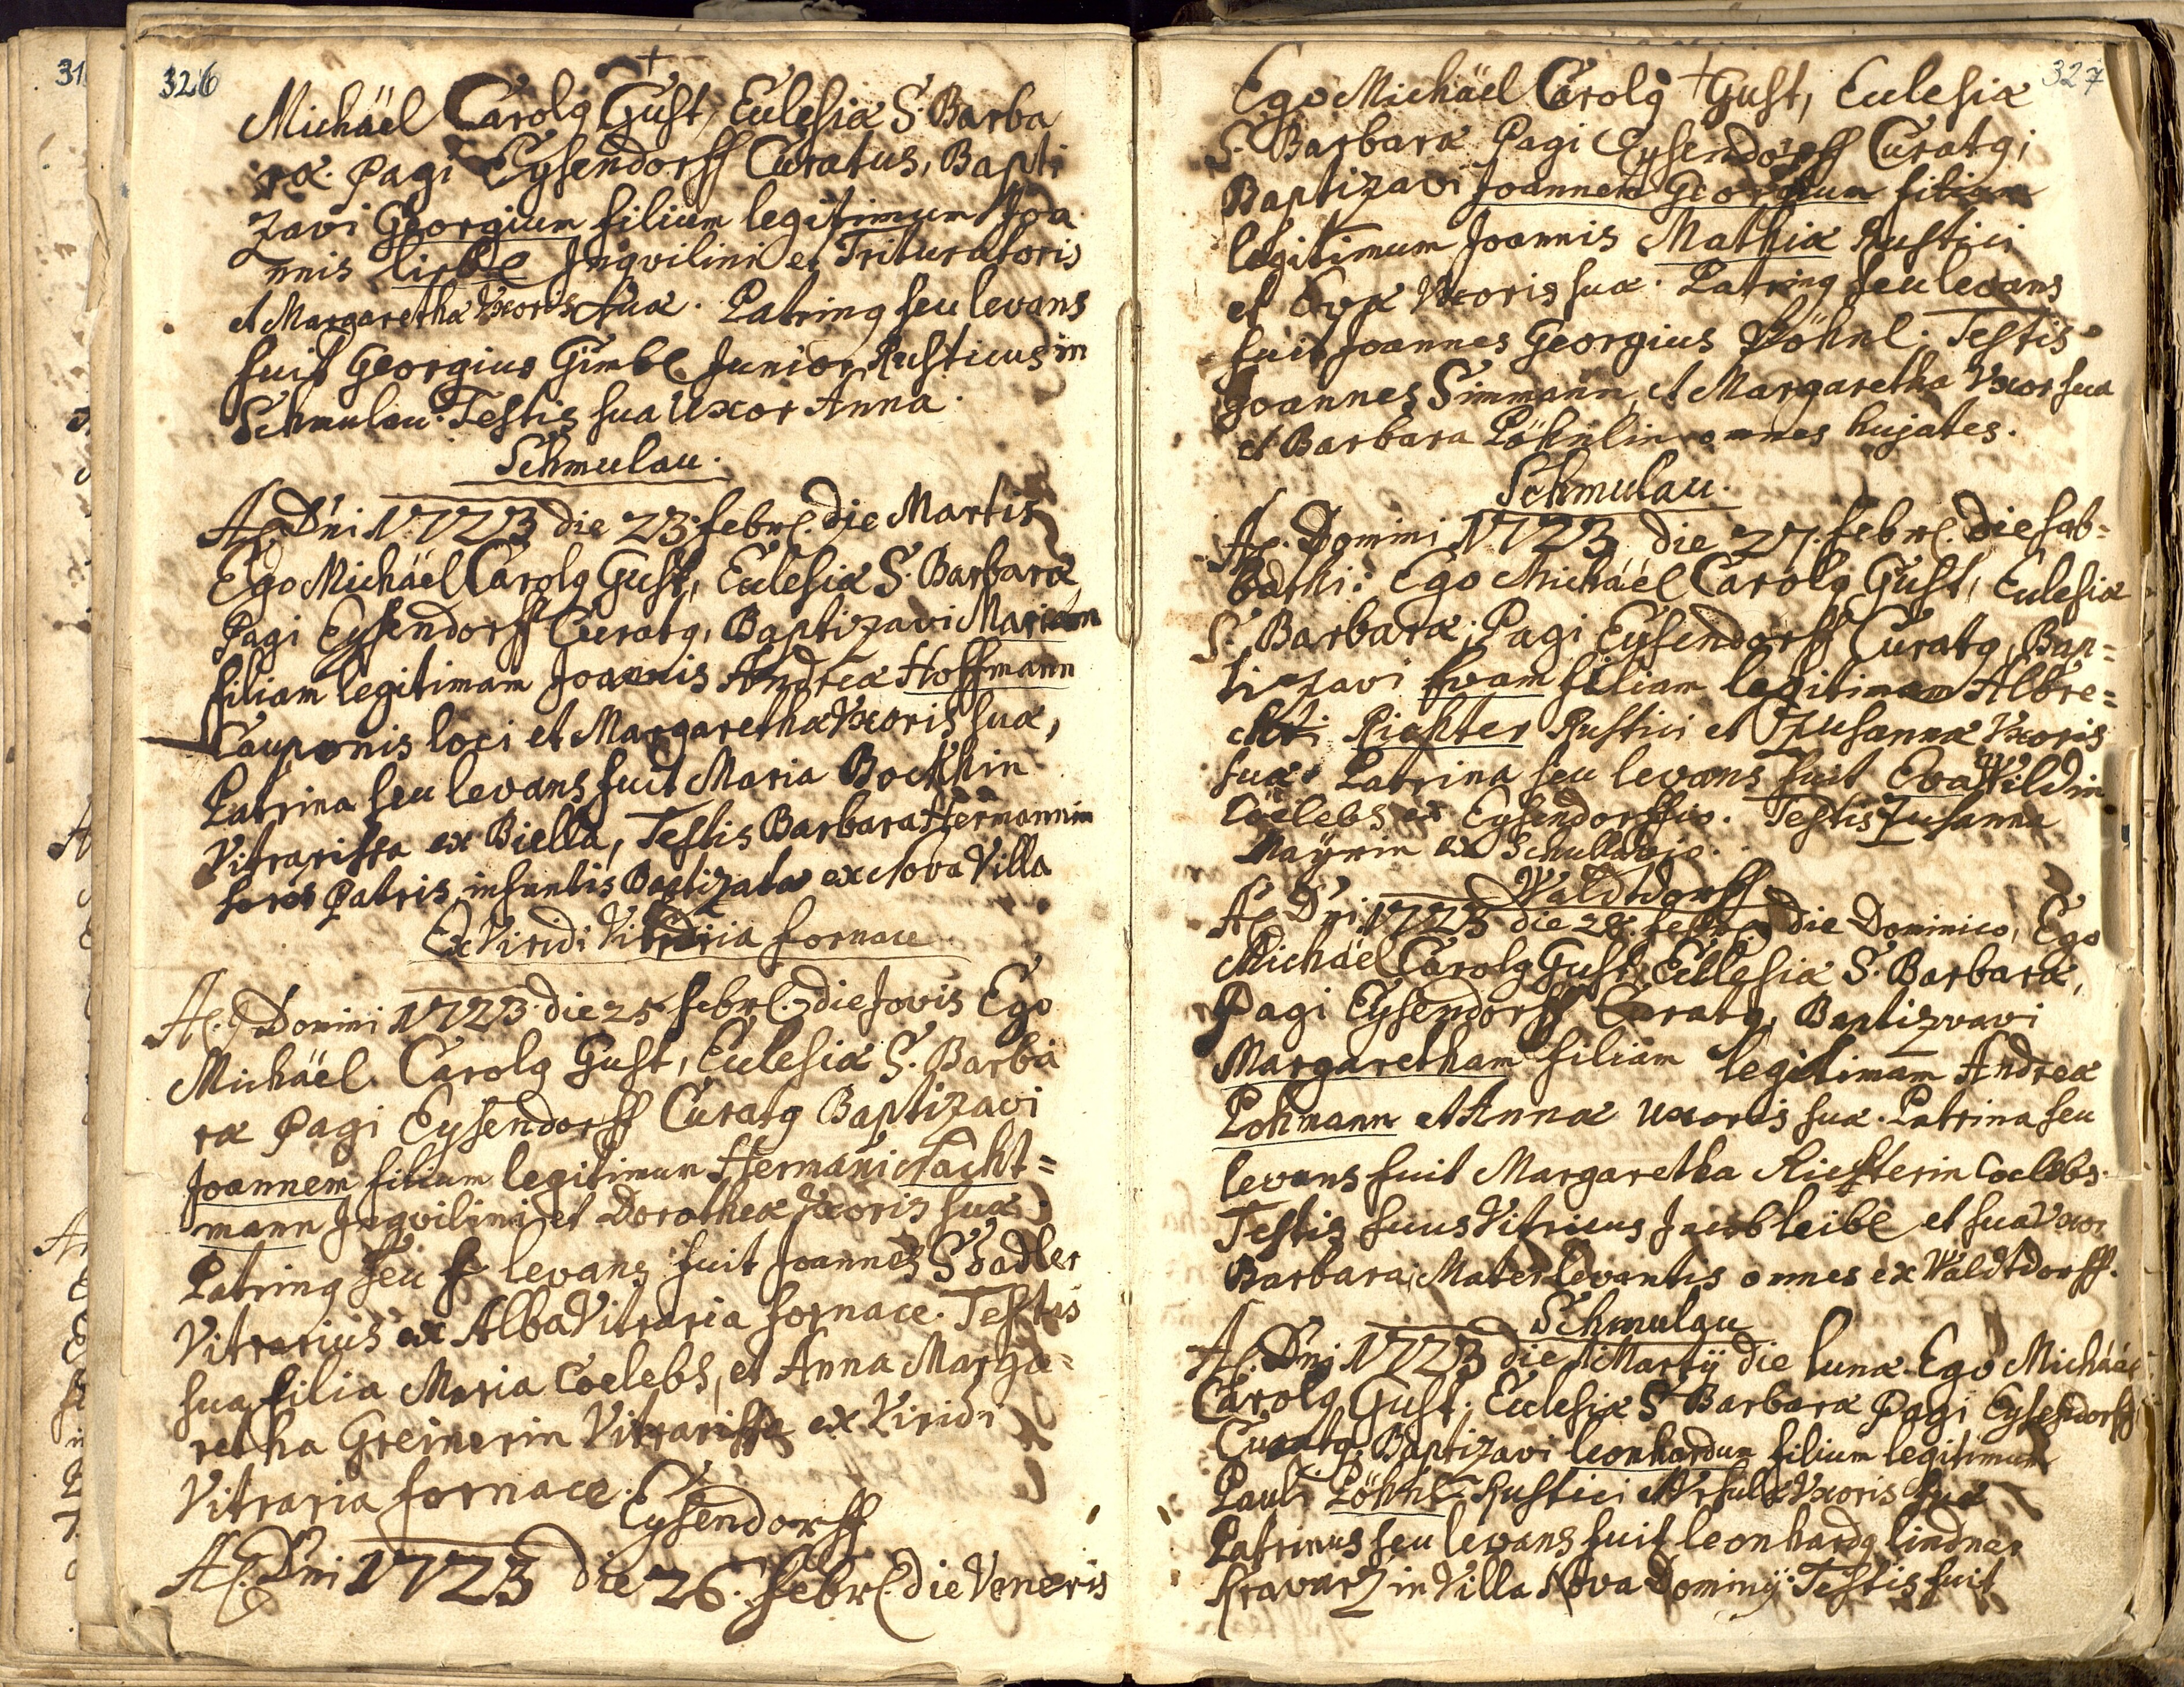 326
Michäel Carolg Gust, Eclesiæ S. Barba
ræ. Pagi Eysendorff Curatus, Bapti
zavi Georgium filium legitimum Joa
nnis Inqvilini et Trituratoris
et Margarethæ Uxoris suæ. Patring seu levans
fuit Georgius Gimbl Junior Rusticus in
Schmulau. Testis sua Uxor Anna.
Schmulau.
A. Dni 1723 die 23 febrl. die Martis
Ego Michäel Carolg Gust, Eclesiæ S. Barbaræ
Pagi Eysendorff Curatg, Baptizavi Mariam
filiam legitimam Joannis Andreæ Hoffmann
Cauponis loci et Margarethæ Uxoris suæ,
Patrina seu levans fuit Maria Bockhin
Vitrarissa ex Biella, Testis Barbara Hermannin
soror Patris infantis Baptizatæ ex Nova Villa
Ex Viridi Vitraria fornace
A. Domini 1723 die 25 febrl. die Jovis Ego
Michäel Carolg Gust, Eclesiæ S. Barba
ræ Pagi Eysendorff Curatg Baptizavi
Joannem filium legitimum Hermani Nacht=
mann Inqvilini et Dorotheæ Uxoris suæ.
Patring seu levans fuit Joannes Stadler
Vitrarius ex Alba Vitraria fornace. Testis
sua filia Maria Coelebs, et Anna Marga=
retha Greinerin Vitrarissa ex Viridi
Vitraria fornace.
Eysendorff
A. Dni 1723 die 26. febrl. die Veneris
327
Ego Michäel Carolg Gust, Eclesiæ
S. Barbaræ Pagi Eysendorff Curatg,
Baptizavi Joannem Georgium filium
legitimum Joannis Mathiæ Rustici
et Evæ Uxoris suæ. Patring seu levans
fuit Joannes Georgius Pöhnl. Testis
Joannes Simmann, et Margaretha Uxor sua
et Barbara Pöhnlin omnes hujates.
Schmulau.
A. Domini 1723 die 27. febrl. die sab=
bathi. Ego Michäel Carolg Gust, Eclesiæ
S. Barbaræ, Pagi Eysendorff Curatg, Bap=
tizavi Evam filiam legitimam Albre=
chti Richter Rustici et Zusannæ Uxoris
suæ. Patrina seu levans fuit Eva Wildin
Coelebs ex Eysendorffio. Testis Zusanna
Mayrin ex
Waldtdorff
A. Dni 1723 die 28. febrl. die Dominico, Ego
Michäel Carolg Gust, Eclesiæ S. Barbaræ,
Pagi Eysendorff Curatg, Baptizvavi
Margaretham filiam legitimam Andreæ
Pohmann et Annæ uxoris suæ. Patrina seu
levans fuit Margaretha Richterin Coelebs.
Testis suus Vitricus Jacob leibl et sua Uxor
Barbara, Mater levantis omnes ex Waldtdorff.
Schmulau
A. Dni 1723 die 1 Martÿ die lunæ Ego Michäel
Carolg Gust. Eclesiæ S. Barbaræ Pagi Eysendorff
Curatg. Baptizavi leonhardum filium legitimum
Pauli Pöhnl Rustici et Ursulæ Uxoris suæ
Patrinus seu levans fuit leonhardg lindner
in Villa Nova Dominij. Testis fuit